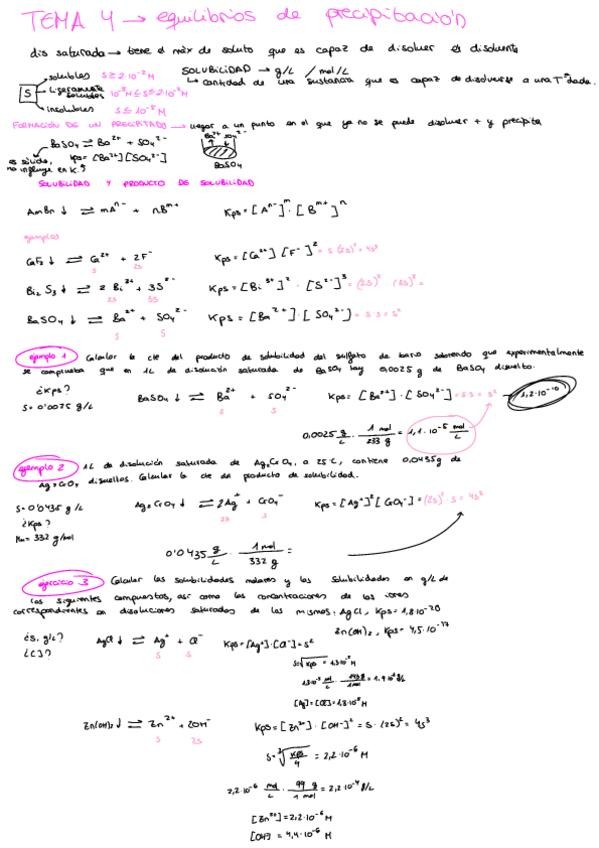 TEMA 4 → equilibrios de precipitación
dis saturada → tiene el máx de soluto que es capaz de disolver el disolvente
S
→ solubles S ≥ 2·10⁻² M
→ ligeramente solubles 10⁻⁵ M ≤ S ≤ 2·10⁻² M
→ insolubles S ≤ 10⁻⁵ M
SOLUBILIDAD → g/L / mol/L
↳ cantidad de una sustancia que es capaz de disolverse a una Tª dada.
FORMACIÓN DE UN PRECIPITADO → llegar a un punto en el que ya no se puede disolver + y precipita
BaSO₄ ⇌ Ba²⁺ + SO₄²⁻
es sólido, no influye en K.
Kps = [Ba²⁺][SO₄²⁻]
Ba²⁺ SO₄²⁻
BaSO₄
SOLUBILIDAD Y PRODUCTO DE SOLUBILIDAD
AmBn ↓ ⇌ mAⁿ⁻ + nBᵐ⁺ Kps = [Aⁿ⁻]ᵐ · [Bᵐ⁺]ⁿ
ejemplos
CaF₂ ↓ ⇌ Ca²⁺ + 2F⁻ Kps = [Ca²⁺][F⁻]² = S·(2S)² = 4S³
S 2S
Bi₂S₃ ↓ ⇌ 2 Bi³⁺ + 3S²⁻ Kps = [Bi³⁺]² · [S²⁻]³ = (2S)² · (3S)³ =
2S 3S
BaSO₄ ↓ ⇌ Ba²⁺ + SO₄²⁻ Kps = [Ba²⁺]·[SO₄²⁻] = S·S = S²
S S
ejemplo 1 Calcular la cte del producto de solubilidad del sulfato de bario sabiendo que experimentalmente
se comprueba que en 1L de disolución saturada de BaSO₄ hay 0,0025 g de BaSO₄ disuelto.
¿Kps?
S = 0'0025 g/L
BaSO₄ ↓ ⇌ Ba²⁺ + SO₄²⁻ Kps = [Ba²⁺]·[SO₄²⁻] = S·S = S² → 1,2·10⁻¹⁰
S S
0,0025 g/L · 1 mol/233 g = 1,1·10⁻⁵ mol/L
ejemplo 2 1L de disolución saturada de Ag₂CrO₄, a 25°C, contiene 0,0435g de
Ag₂CrO₄ disueltos. Calcular la cte de producto de solubilidad.
S = 0'0435 g/L
¿Kps?
Mm = 332 g/mol
Ag₂CrO₄ ↓ ⇌ 2Ag⁺ + CrO₄⁻ Kps = [Ag⁺]²[CrO₄⁻] = (2S)²·S = 4S³
2S S
0'0435 g/L · 1 mol/332 g =
ejercicio 3 Calcular las solubilidades molares y las solubilidades en g/L de
los siguientes compuestos, así como las concentraciones de los iones
correspondientes en disoluciones saturadas de los mismos: AgCl, Kps = 1,8·10⁻²⁰
Zn(OH)₂, Kps = 4,5·10⁻¹⁷
¿S, g/L?
¿[ ]?
AgCl ↓ ⇌ Ag⁺ + Cl⁻ Kps = [Ag⁺]·[Cl⁻] = S²
S S
Zn(OH)₂ ↓ ⇌ Zn²⁺ + 2OH⁻ Kps = [Zn²⁺]·[OH⁻]² = S·(2S)² = 4S³
S 2S
S = ³√(Kps/4) = 2,2·10⁻⁶ M
2,2·10⁻⁶ mol/L · 99 g/1 mol = 2,2·10⁻⁴ g/L
[Zn²⁺] = 2,2·10⁻⁶ M
[OH⁻] = 4,4·10⁻⁶ M